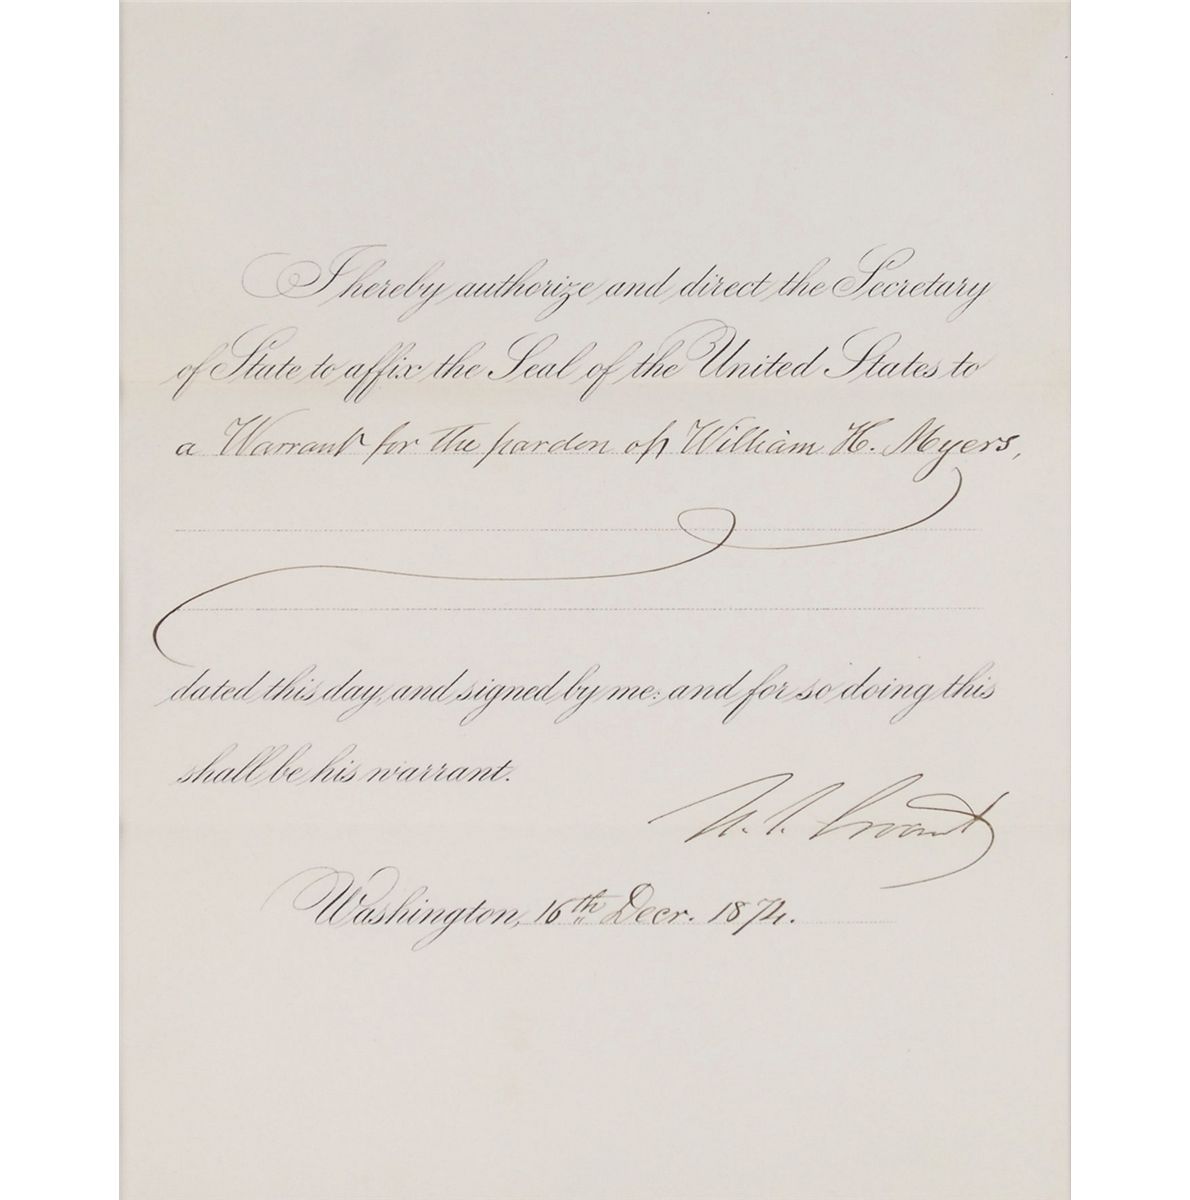 I hereby authorize and direct the Secretary
of State to affix the Seal of the United States to
a Warrant for the pardon of William H. Myers,
dated this day, and signed by me: and for so doing this
shall be his warrant.
U. S. Grant
Washington, 16th Decr. 1874.